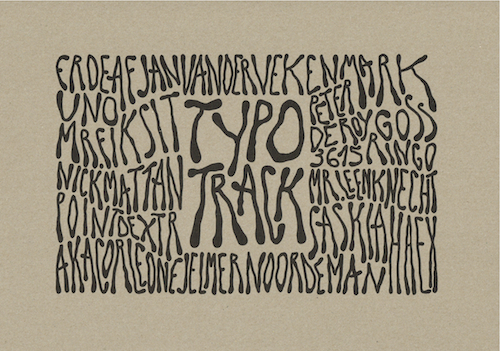 ERDEAF JAN VANDERVEKEN MARK
UNO TYPO PETER GOSS
MR.EIK SIT DE ROY 3615 RINGO
NICK MATTAN TRACK MR.LEENKNECHT
POINTDEXTR SASKIA HAEX
AKACORLEONE JELMER NOORDEMAN